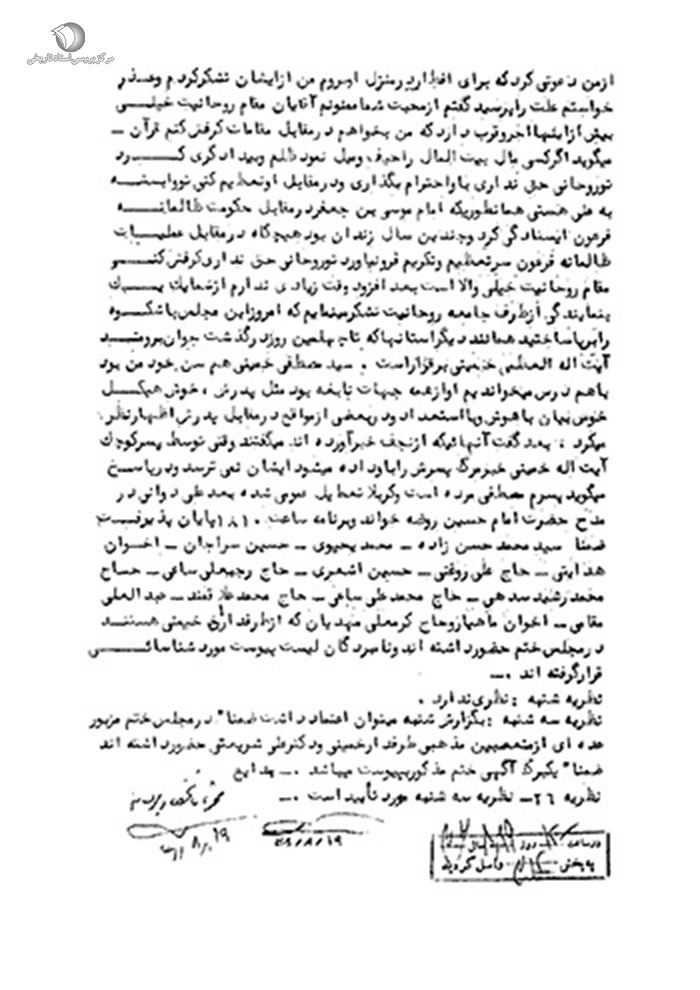 مرکز بررسی اسناد تاریخی
ازمن دعوتی کرد که برای افطار بمنزل او بروم من از ایشان تشکر کردم و عذر
خواستم علت را پرسید گفتم از محبت شما ممنونم آقایان مقام روحانیت خیلی
بیش از اینها اجر و قرب دارد که من بخواهم در مقابل مقامات کرنش کنم قرآن –
میگوید اگر کسی مال بیت المال را حیف و میل نمود ظلم و بیدادگری کرد
تو روحانی حق نداری با و احترام بگذاری و در مقابل او تعظیم کنی تو وابسته
به علی هستی همانطوریکه امام موسی بن جعفر در مقابل حکومت ظالمانه
فرعون ایستادگی کرد و چندین سال زندان بود هیچگاه در مقابل عملیات
ظالمانه فرعون سر تعظیم و تکریم فرو نیاورد تو روحانی حق نداری کرنش کنی
مقام روحانیت خیلی والا است بعد افزود وقت زیادی ندارم از شما یک یک
بنمایندگی از طرف جامعه روحانیت تشکر مینمایم که امروز این مجلس با شکوه
را برپا ساختید همانند دیگر استانها که تا چهلمین روز درگذشت جوان برومند
آیت اله العظمی خمینی برقرار است . سید مصطفی خمینی هم سن خود من بود
با هم درس میخواندیم او از همه جهات نابغه بود مثل پدرش ، خوش هیکل
خوش بیان با هوش و با استعداد و در بعضی از مواقع در مقابل پدرش اظهار نظر
میکرد . بعد گفت آنهائیکه از نجف خبر آورده اند میگفتند وقتی توسط پسر کوچک
آیت اله خمینی خبر مرگ پسرش را باو داده میشود ایشان نمی ترسد و در پاسخ
میگوید پسرم مصطفی مرده است و کربلا تعطیل عمومی شده بعد علی دوانی در
مدح حضرت امام حسین روضه خواند و برنامه ساعت ۱۸۱۰ پایان پذیرفت
ضمنا سید محمد حسن زاده – محمد یحیوی – حسین سراجان – اخوان
هدایتی – حاج علی روغنی – حسین اشعری – حاج رجبعلی ساعی – حساح
محمد رشید سدهی – حاج محمد علی ساعی – حاج محمد علاقمند – عبدالعلی
مقامی – اخوان ماهیار و حاج کرمعلی مهدیان که از طرفداران خمینی هستند
در مجلس ختم حضور داشته اند و نامبردگان لیست پیوست مورد شناسائی
قرار گرفته اند .–
نظریه شنبه : نظری ندارد .
نظریه سه شنبه : بگزارش شنبه میتوان اعتماد داشت ضمنا" در مجلس ختم مزبور
عده ای از متعصبین مذهبی طرفدار خمینی و دکتر علی شریعتی حضور داشته اند
ضمنا" یکبرگ آگهی ختم مذکور بپیوست میباشد .– بدایع
نظریه ۲۶– نظریه سه شنبه مورد تأیید است .–
۳۶/۸/۱۹
۸/۱۹
در ساعت روز
به بخش واصل گردید